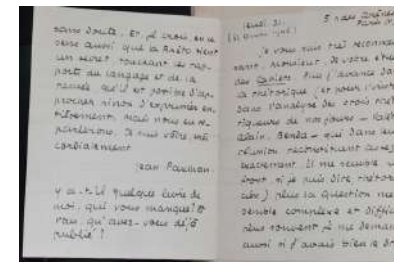 sans doute. Et je crois, en ce
sens aussi que la Rhéto tient
un secret, touchant les rap-
ports du langage et de la
pensée qu'il est possible d'ap-
procher sinon d'exprimer en-
tièrement, mais nous en re-
parlerons. Je suis vôtre, très
cordialement
Jean Paulhan.
y a-t-il quelque livre de
moi qui vous manque? Et
vous, qu'avez-vous déjà
publié?
jeudi 31.
5 rue des Arènes
Paris
je vous suis très reconnais-
sant, Monsieur, de votre étude
des Cahiers. Plus j'avance dans
la rhétorique (et pour
dans l'analyse des trois rhéto-
riqueurs de nos jours –
Alain, Benda – que dans leur
réunion reconstituent assez
exactement. Il me semble
front si je puis dire rhétor
plus la question me
semble complexe et diffici
plus souvent je me deman
aussi si j'avais bien le dr